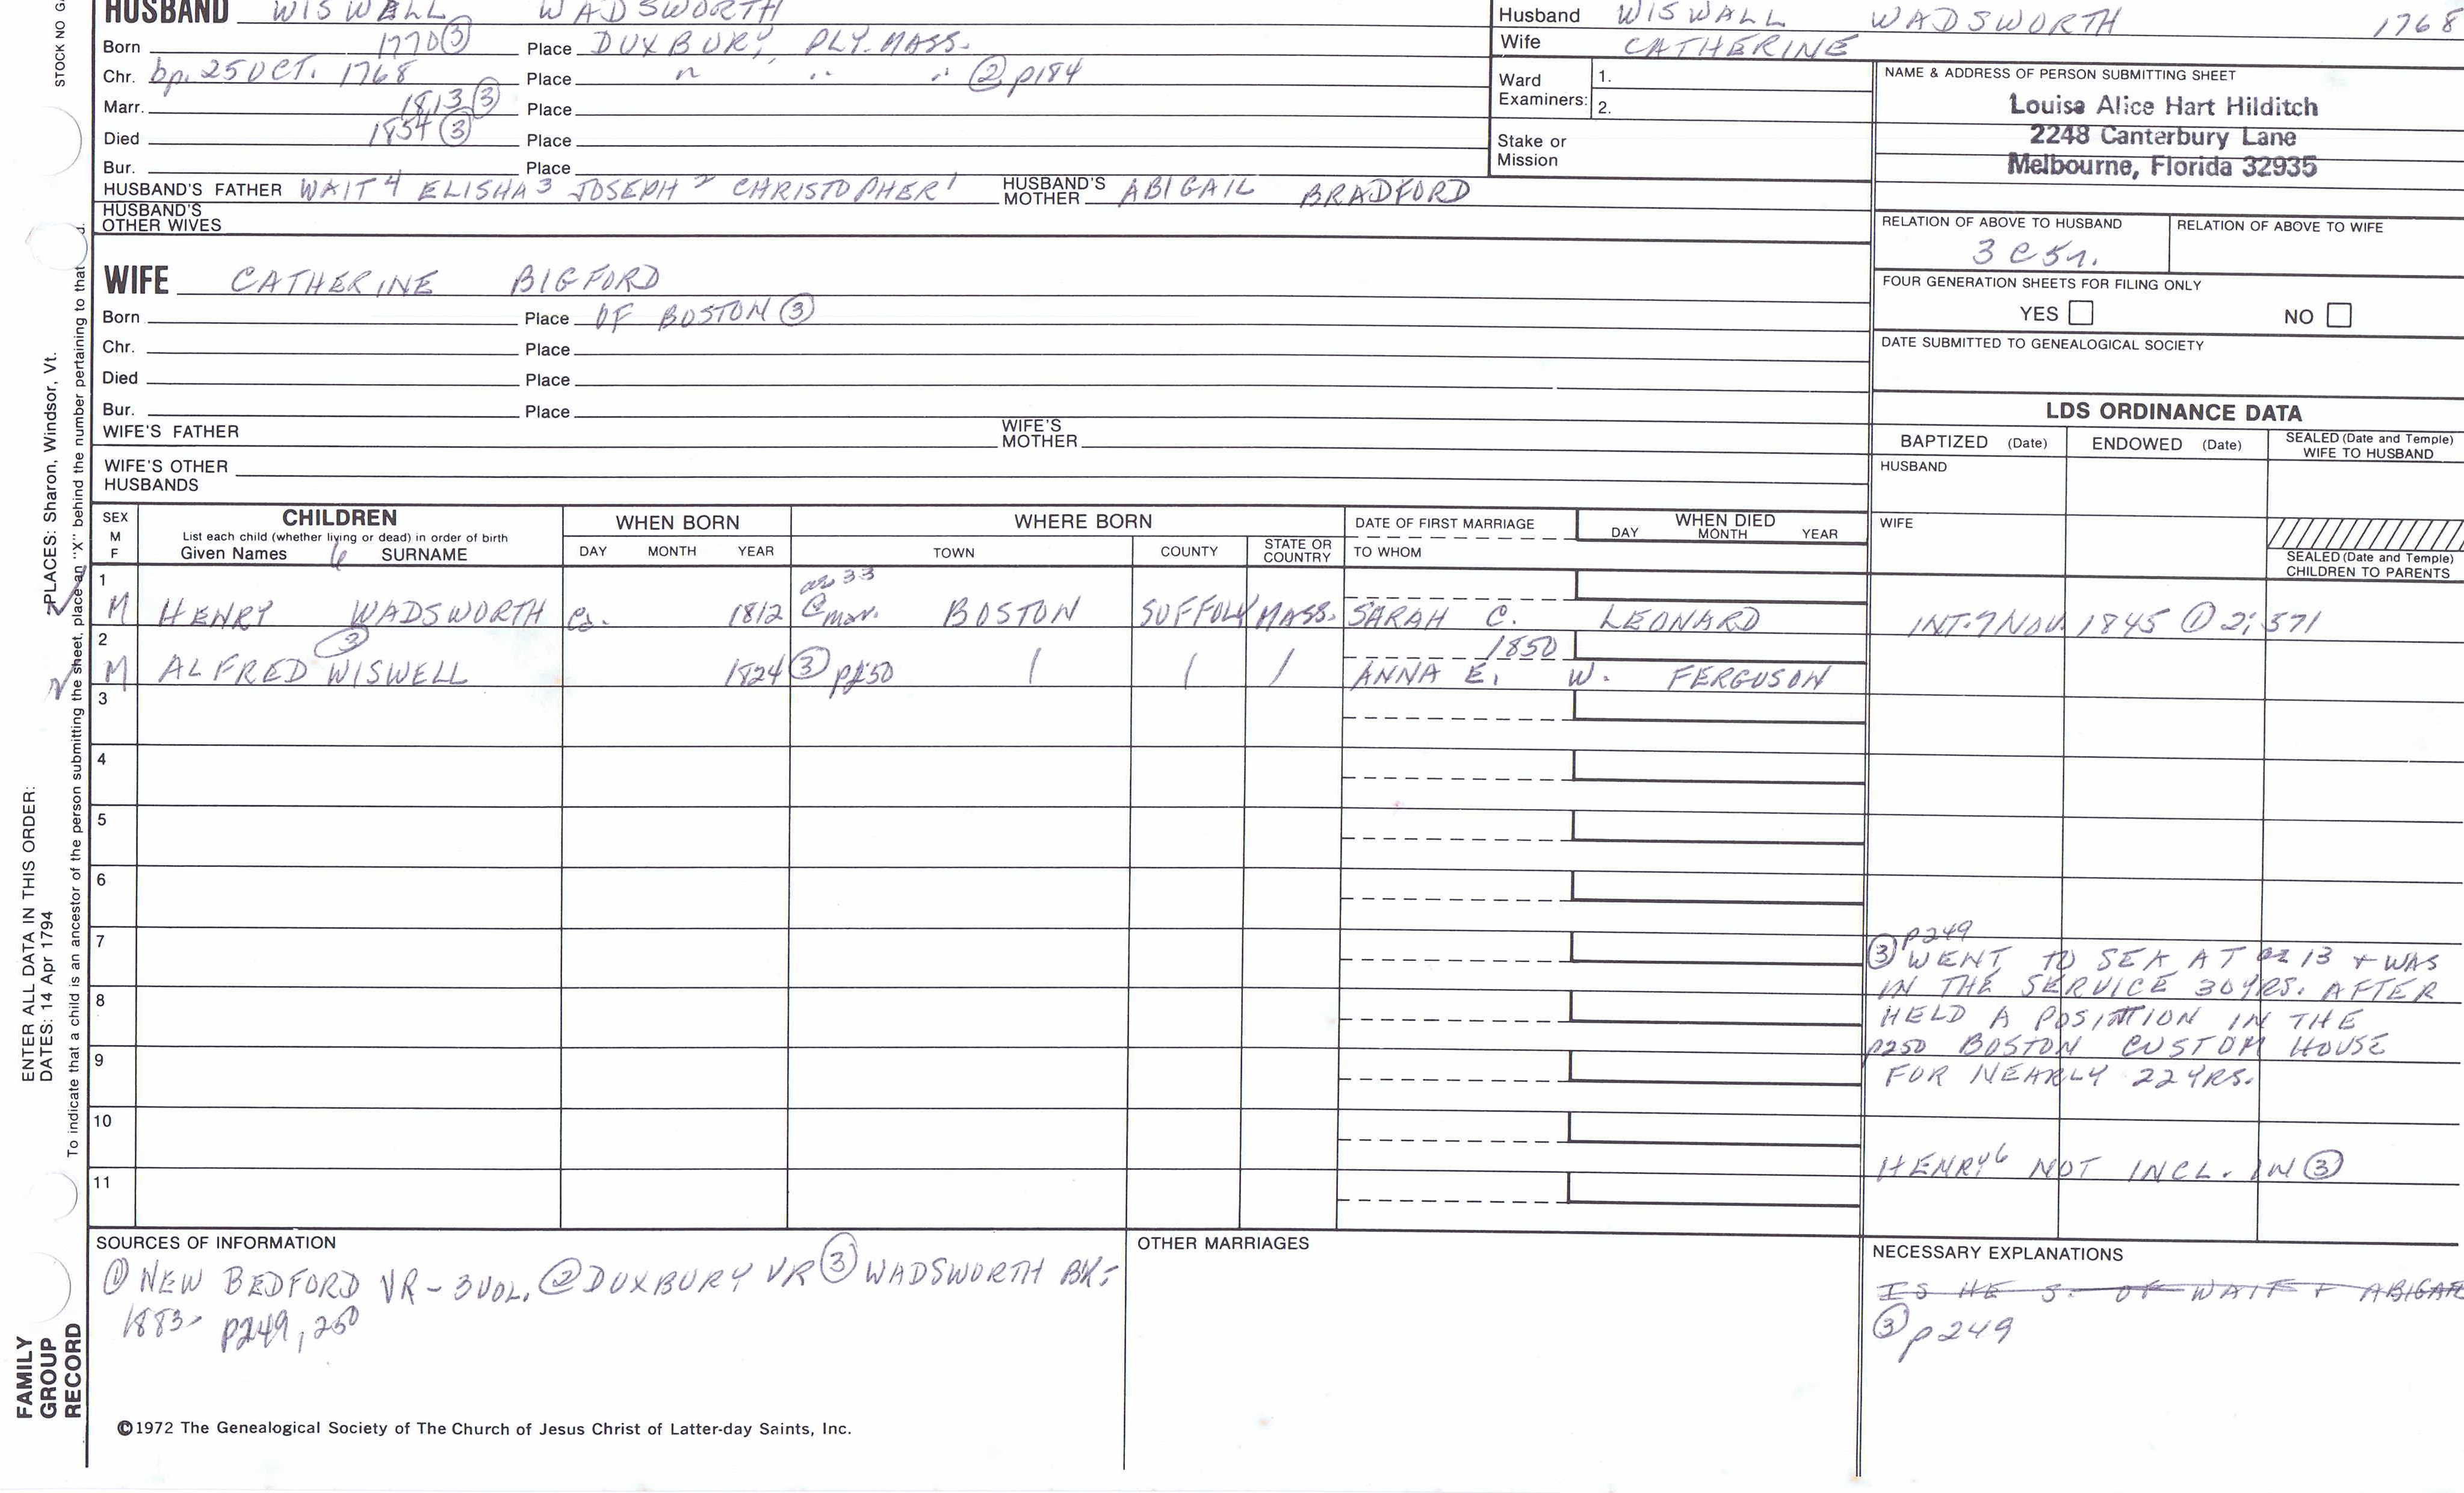 HUSBAND WISWALL WADSWORTH
Born 1770 ③ Place DUXBURY, PLY. MASS.
Chr. bp. 25 OCT. 1768 Place " " " ② p184
Marr. 1813 ③ Place
Died 1854 ③ Place
Bur. Place
HUSBAND'S FATHER WAIT 4 ELISHA 3 JOSEPH 2 CHRISTOPHER 1 HUSBAND'S MOTHER ABIGAIL BRADFORD
HUSBAND'S OTHER WIVES
WIFE CATHERINE BIGFORD
Born Place OF BOSTON ③
Chr. Place
Died Place
Bur. Place
WIFE'S FATHER WIFE'S MOTHER
WIFE'S OTHER HUSBANDS
Husband WISWALL WADSWORTH 1768
Wife CATHERINE
Ward Examiners: 1.
2.
Stake or Mission
NAME & ADDRESS OF PERSON SUBMITTING SHEET
Louise Alice Hart Hilditch
2248 Canterbury Lane
Melbourne, Florida 32935
RELATION OF ABOVE TO HUSBAND RELATION OF ABOVE TO WIFE
3 C 5 r.
FOUR GENERATION SHEETS FOR FILING ONLY
YES NO
DATE SUBMITTED TO GENEALOGICAL SOCIETY
LDS ORDINANCE DATA
BAPTIZED (Date) ENDOWED (Date) SEALED (Date and Temple) WIFE TO HUSBAND
HUSBAND
WIFE
SEALED (Date and Temple) CHILDREN TO PARENTS
SEX M F
CHILDREN
List each child (whether living or dead) in order of birth
Given Names 6 SURNAME
WHEN BORN
DAY MONTH YEAR
WHERE BORN
TOWN COUNTY STATE OR COUNTRY
DATE OF FIRST MARRIAGE
TO WHOM
WHEN DIED
DAY MONTH YEAR
1
ae 33
M HENRY WADSWORTH Ca. 1812 @ mar. BOSTON SUFFOLK MASS. SARAH C. LEONARD INT. 7 NOV. 1845 ① 2; 571
2 ③ 1850
M ALFRED WISWELL 1824 ③ p250 / / / ANNA E. W. FERGUSON
3
4
5
6
7
8
9
10
11
③ p249
WENT TO SEA AT ae 13 + WAS
IN THE SERVICE 30 YRS. AFTER
HELD A POSITION IN THE
p250 BOSTON CUSTOM HOUSE
FOR NEARLY 22 YRS.
HENRY 6 NOT INCL. IN ③
SOURCES OF INFORMATION
① NEW BEDFORD VR - 3 VOL. ② DUXBURY VR ③ WADSWORTH BK-
1883- p249, 250
OTHER MARRIAGES
NECESSARY EXPLANATIONS
IS HE S. OF WAIT + ABIGAIL
③ p249
©1972 The Genealogical Society of The Church of Jesus Christ of Latter-day Saints, Inc.
STOCK NO
PLACES: Sharon, Windsor, Vt.
ENTER ALL DATA IN THIS ORDER:
DATES: 14 Apr 1794
To indicate that a child is an ancestor of the person submitting the sheet, place an "X" behind the number pertaining to that
FAMILY
GROUP
RECORD